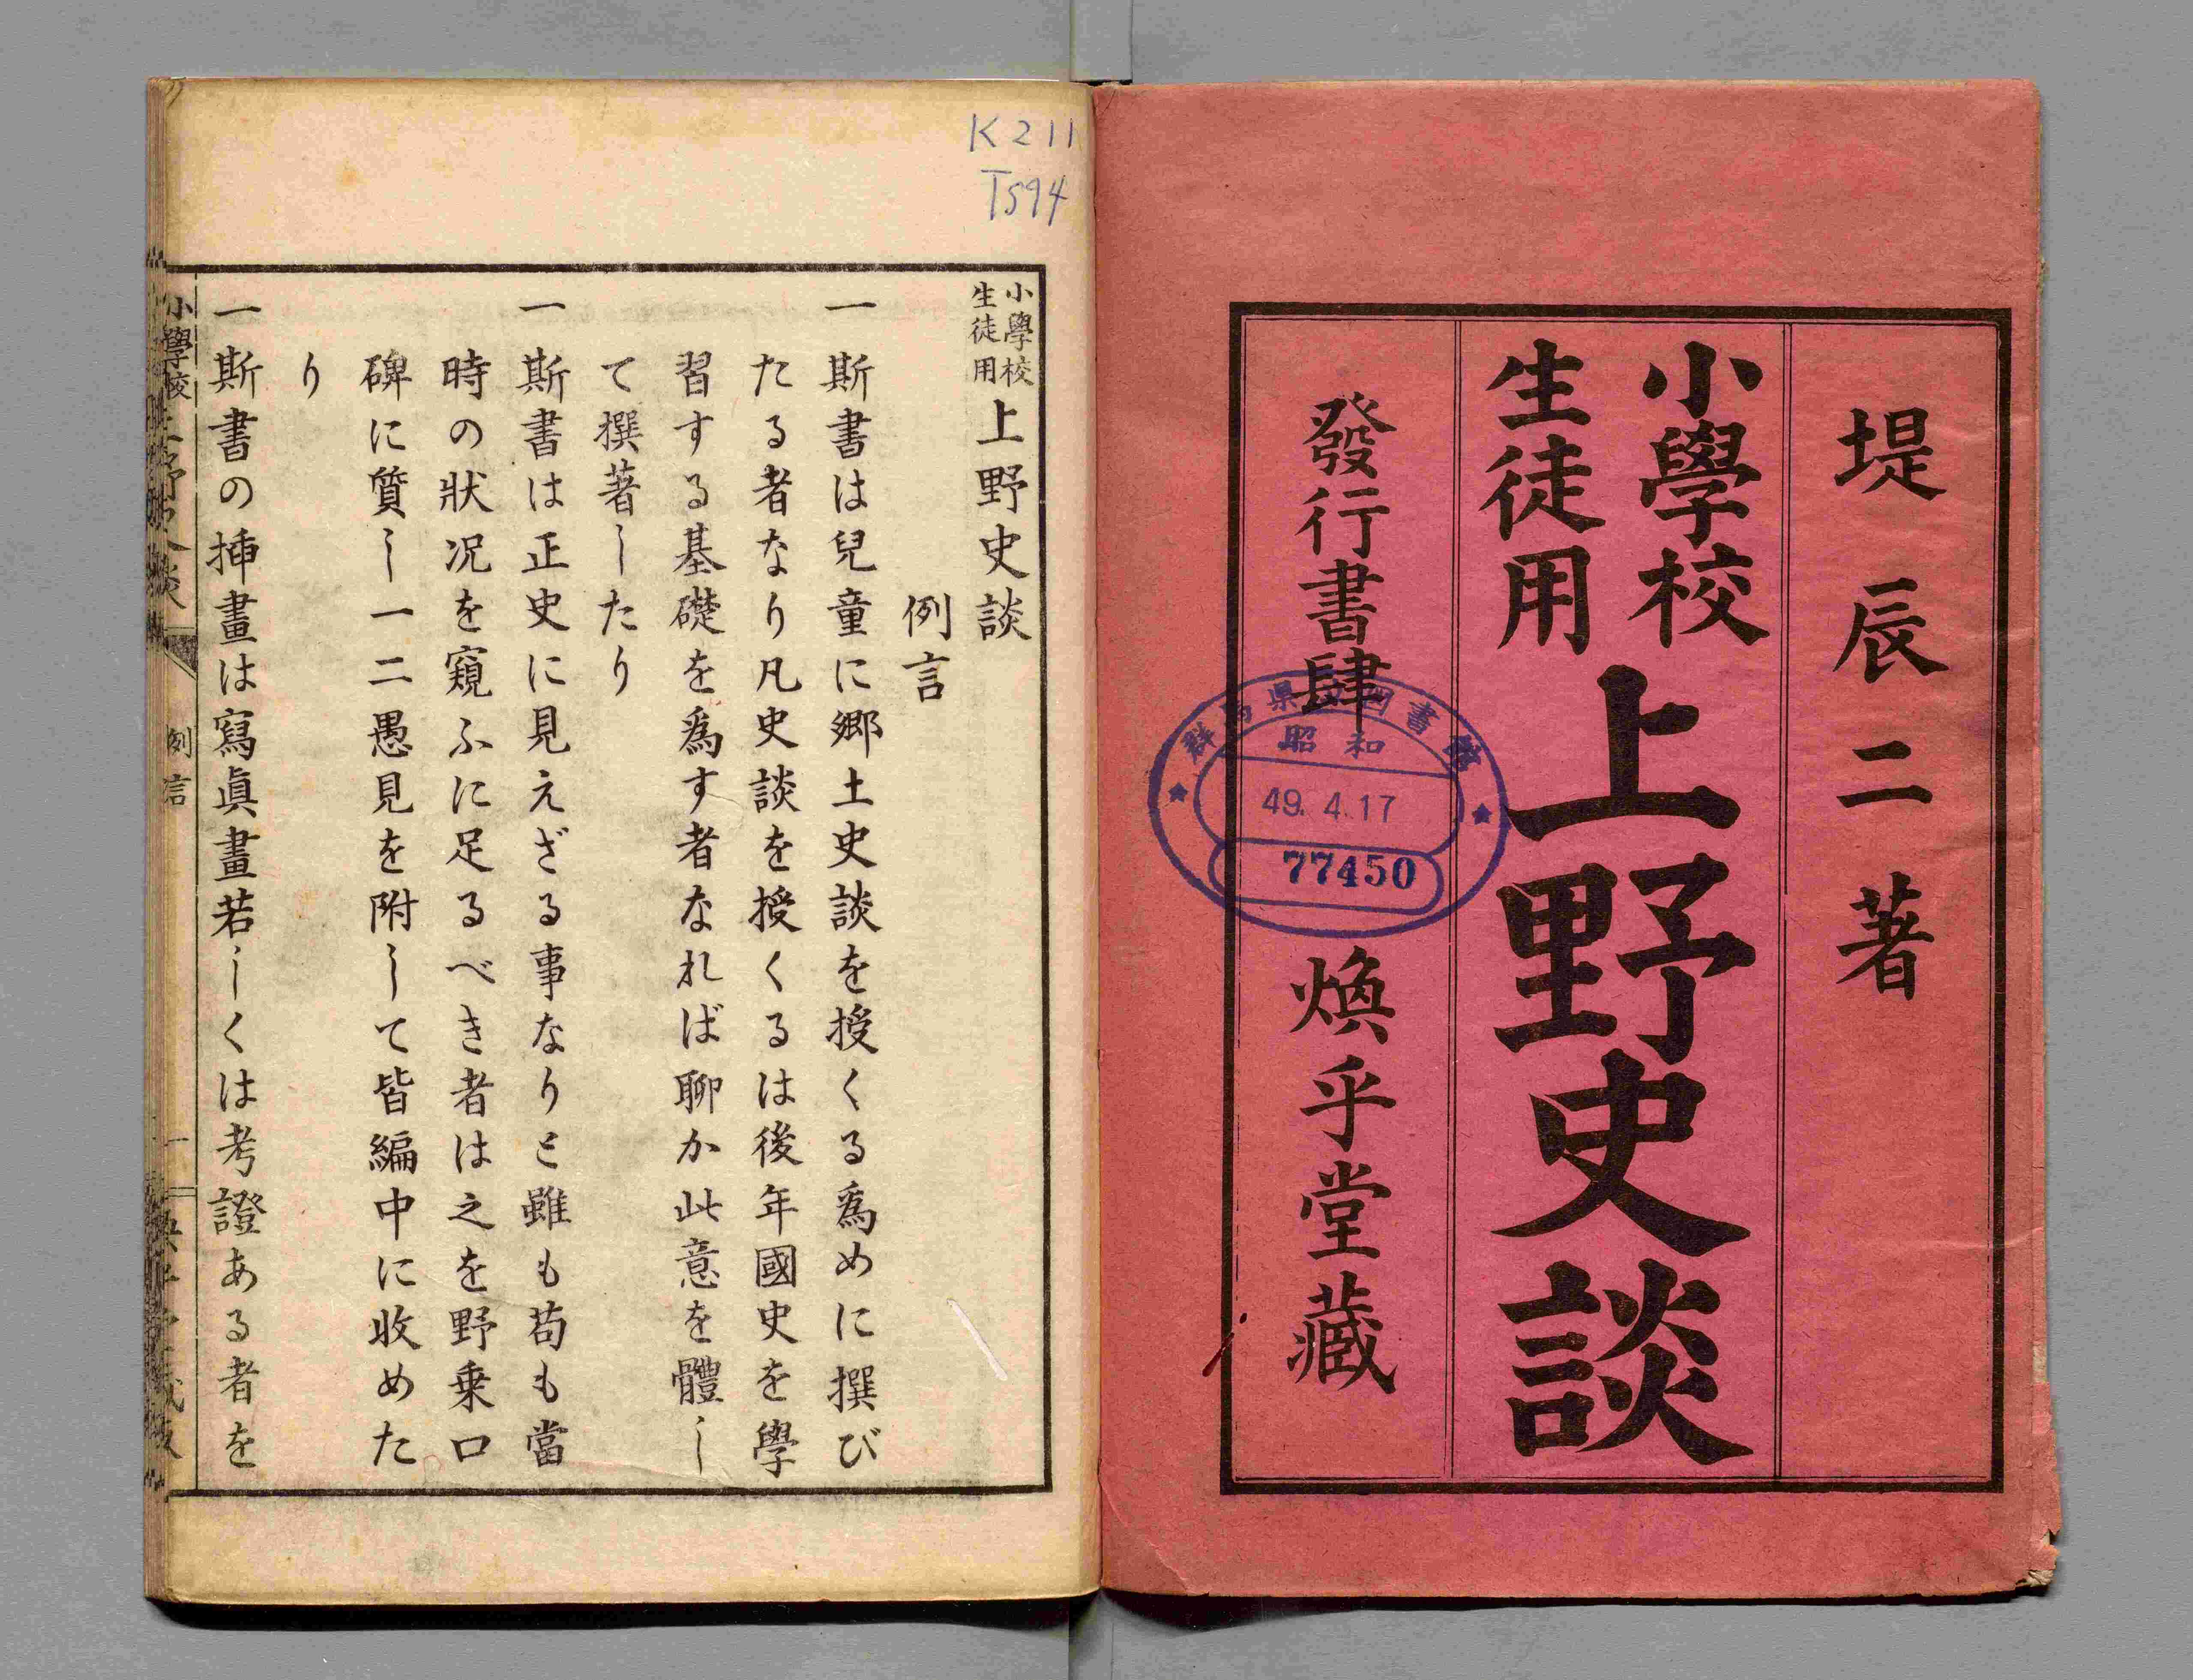 堤辰二著
小學校
生徒用
上野史談
發行書肆 煥乎堂藏
群馬県立図書館
昭和
49. 4. 17
77450
K211
T594
小學校
生徒用
上野史談
例言
一斯書は兒童に郷土史談を授くる爲めに撰び
たる者なり凡史談を授くるは後年國史を學
習する基礎を爲す者なれば聊か此意を體し
て撰著したり
一斯書は正史に見えざる事なりと雖も苟も當
時の狀况を窺ふに足るべき者は之を野乗口
碑に質し一二愚見を附して皆編中に收めた
り
一斯書の挿畫は寫眞畫若しくは考證ある者を
小學校
例言
一